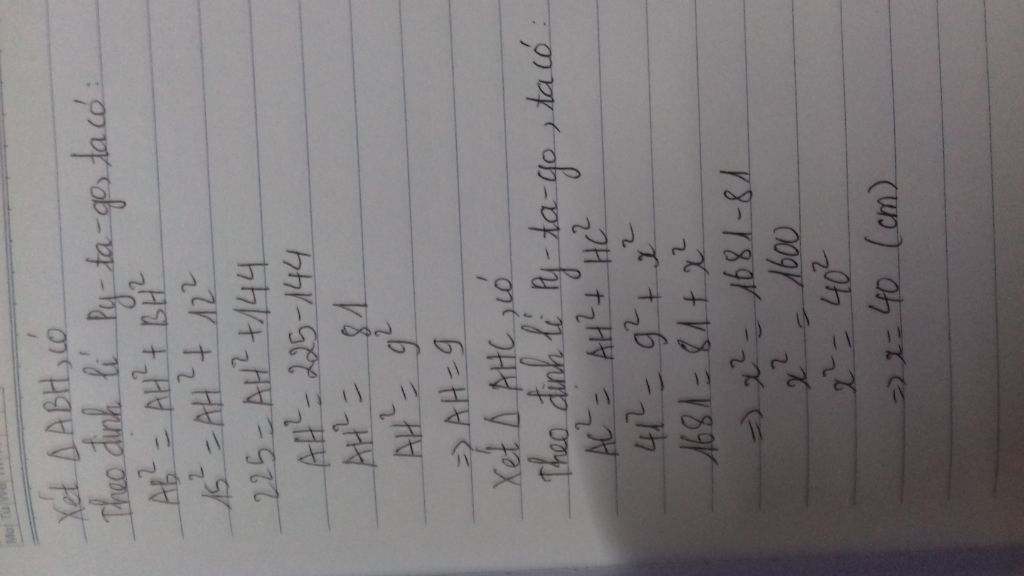 Xét Δ ABH, có
Theo định lí Py-ta-go, ta có:
AB² = AH² + BH²
15² = AH² + 12²
225 = AH² + 144
AH² = 225 - 144
AH² = 81
AH² = 9²
=> AH = 9
Xét Δ AHC, có
Theo định lí Py-ta-go, ta có:
AC² = AH² + HC²
41² = 9² + x²
1681 = 81 + x²
=> x² = 1681 - 81
x² = 1600
x² = 40²
=> x = 40 (cm)